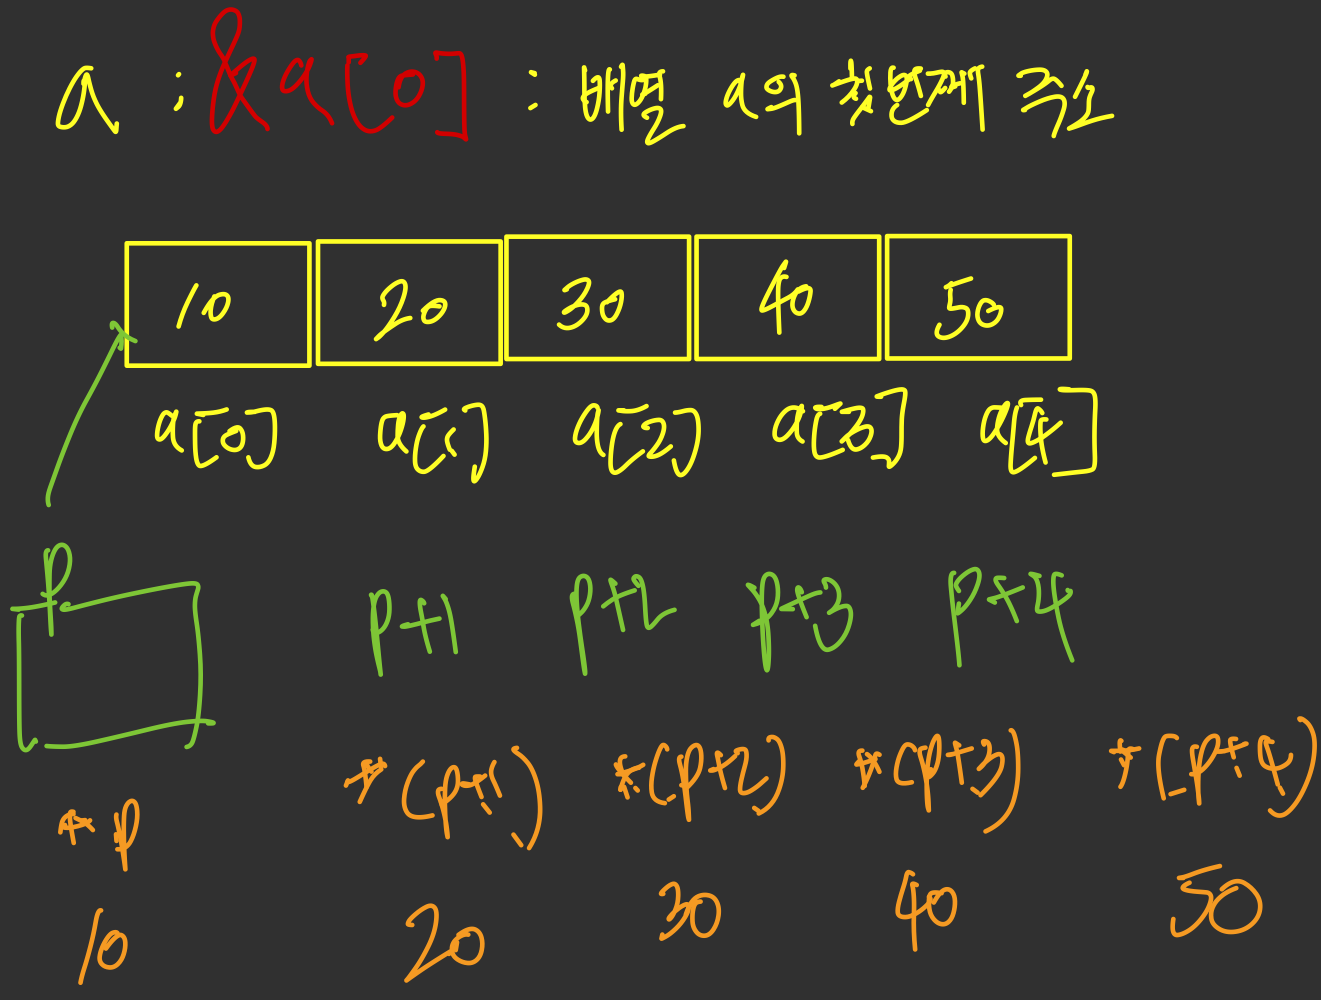 a ; &a[0] : 배열 a의 첫번째 주소
10 20 30 40 50
a[0] a[1] a[2] a[3] a[4]
p p+1 p+2 p+3 p+4
*p *(p+1) *(p+2) *(p+3) *(p+4)
10 20 30 40 50